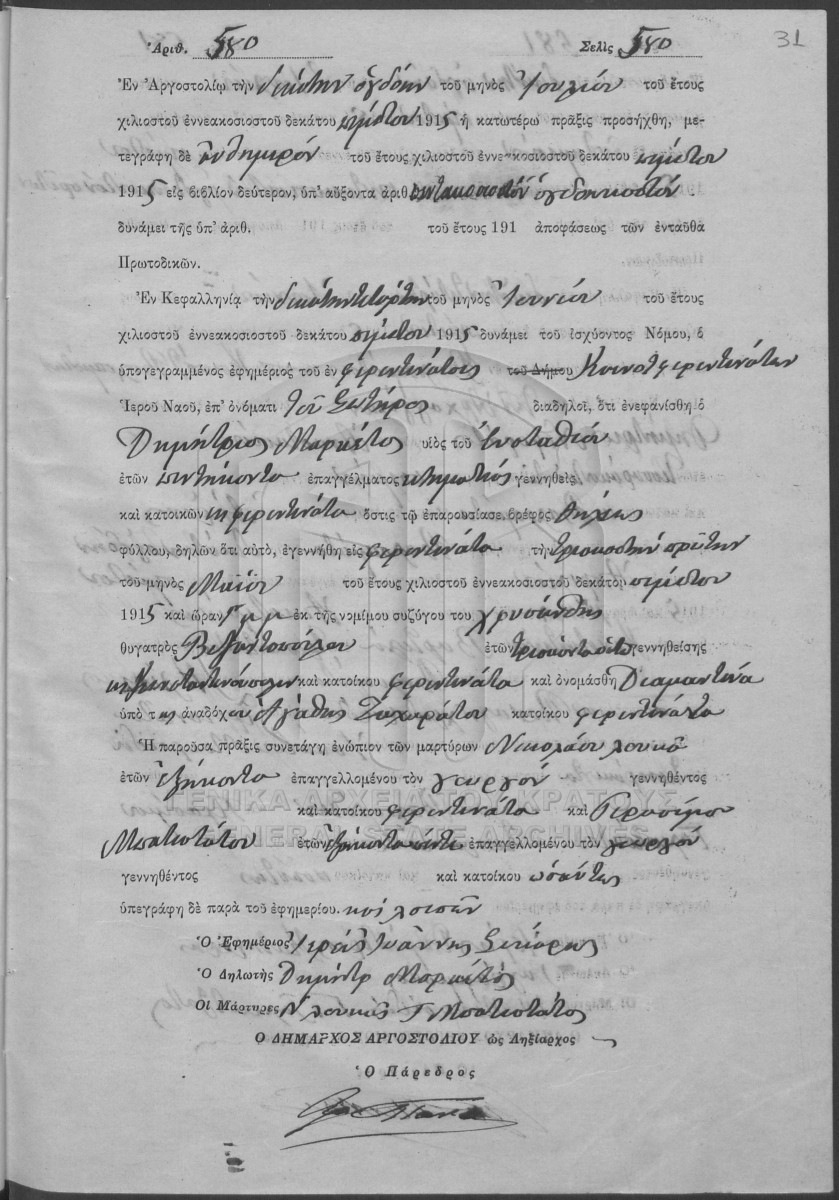 31
Ἀριθ. 580 Σελὶς 580
Ἐν Ἀργοστολίῳ τὴν δεκάτην ὀγδόην τοῦ μηνὸς Ἰουλίου τοῦ ἔτους
χιλιοστοῦ ἐννεακοσιοστοῦ δεκάτου πέμπτου 1915 ἡ κατωτέρω πρᾶξις προσήχθη, με-
τεγράφη δὲ αὐθημερόν τοῦ ἔτους χιλιοστοῦ ἐννεακοσιοστοῦ δεκάτου πέμπτου
1915 εἰς βιβλίον δεύτερον, ὑπ' αὔξοντα ἀριθ. πεντακοσιοστόν ὀγδοηκοστόν.
δυνάμει τῆς ὑπ' ἀριθ. τοῦ ἔτους 191 ἀποφάσεως τῶν ἐνταῦθα
Πρωτοδικῶν.
Ἐν Κεφαλληνίᾳ τὴν δεκάτην τετάρτην τοῦ μηνὸς Ἰουνίου τοῦ ἔτους
χιλιοστοῦ ἐννεακοσιοστοῦ δεκάτου πέμπτου 1915 δυνάμει τοῦ ἰσχύοντος Νόμου, ὁ
ὑπογεγραμμένος ἐφημέριος τοῦ ἐν Φερεντινάτοις τοῦ Δήμου Κοινοτ Φερεντινάτων
Ἱεροῦ Ναοῦ, ἐπ' ὀνόματι τοῦ Σωτῆρος διαδηλοῖ, ὅτι ἐνεφανίσθη ὁ
Δημήτριος Μαρκέτος υἱὸς τοῦ Εὐσταθίου
ἐτῶν πεντήκοντα ἐπαγγέλματος κτηματίας γεννηθεὶς
καὶ κατοικῶν εἰς Φερεντινάτα ὅστις τῷ ἐπαρουσίασε βρέφος θήλεως
φύλλου, δηλῶν ὅτι αὐτὸ, ἐγεννήθη εἰς Φερεντινάτα τὴν τριακοστήν πρώτην
τοῦ μηνὸς Μαΐου τοῦ ἔτους χιλιοστοῦ ἐννεακοσιοστοῦ δεκάτου πέμπτου
1915 καὶ ὥραν μ μ ἐκ τῆς νομίμου συζύγου του Χρυσάνθης
θυγατρὸς ἐτῶν τριάκοντα γεννηθείσης
εἰς Κωνσταντινούπολιν καὶ κατοίκου Φερεντινάτα καὶ ὀνομάσθη Διαμαντίνα
ὑπὸ της ἀναδόχου Ἀγάθης Ζαχαράτου κατοίκου Φερεντινάτα
Ἡ παροῦσα πρᾶξις συνετάγη ἐνώπιον τῶν μαρτύρων Νικολάου Λουκᾶ
ἐτῶν ἑξήκοντα ἐπαγγελλομένου τὸν γεωργόν γεννηθέντος
ΓΕΝΙΚΑ ΑΡΧΕΙΑ ΤΟΥ ΚΡΑΤΟΥΣ
καὶ κατοίκου Φερεντινάτα καὶ Γερασίμου
GENERAL STATE ARCHIVES
Μπατιστάτου ἐτῶν ἑξήκοντα πέντε ἐπαγγελλομένου τὸν γεωργόν
γεννηθέντος καὶ κατοίκου ὡσαύτως
ὑπεγράφη δὲ παρὰ τοῦ ἐφημερίου. καὶ λοιπῶν
Ὁ Ἐφημέριος Ἱερεύς Ἰωάννης
Ὁ Δηλωτὴς Δημήτρ Μαρκέτος
Οἱ Μάρτυρες Ν Λουκᾶς Γ Μπατιστάτος
Ο ΔΗΜΑΡΧΟΣ ΑΡΓΟΣΤΟΛΙΟΥ ὡς Ληξίαρχος
Ὁ Πάρεδρος